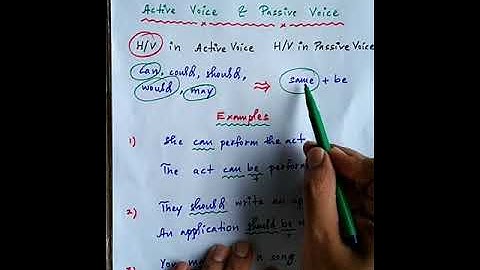 Active Voice & Passive Voice
H/V in Active Voice H/V in Passive Voice
Can, could, should, would, may ⇒ same + be
Examples
1) She can perform the act
The act can be perform
2) They should write an ap
An application should be
You a song